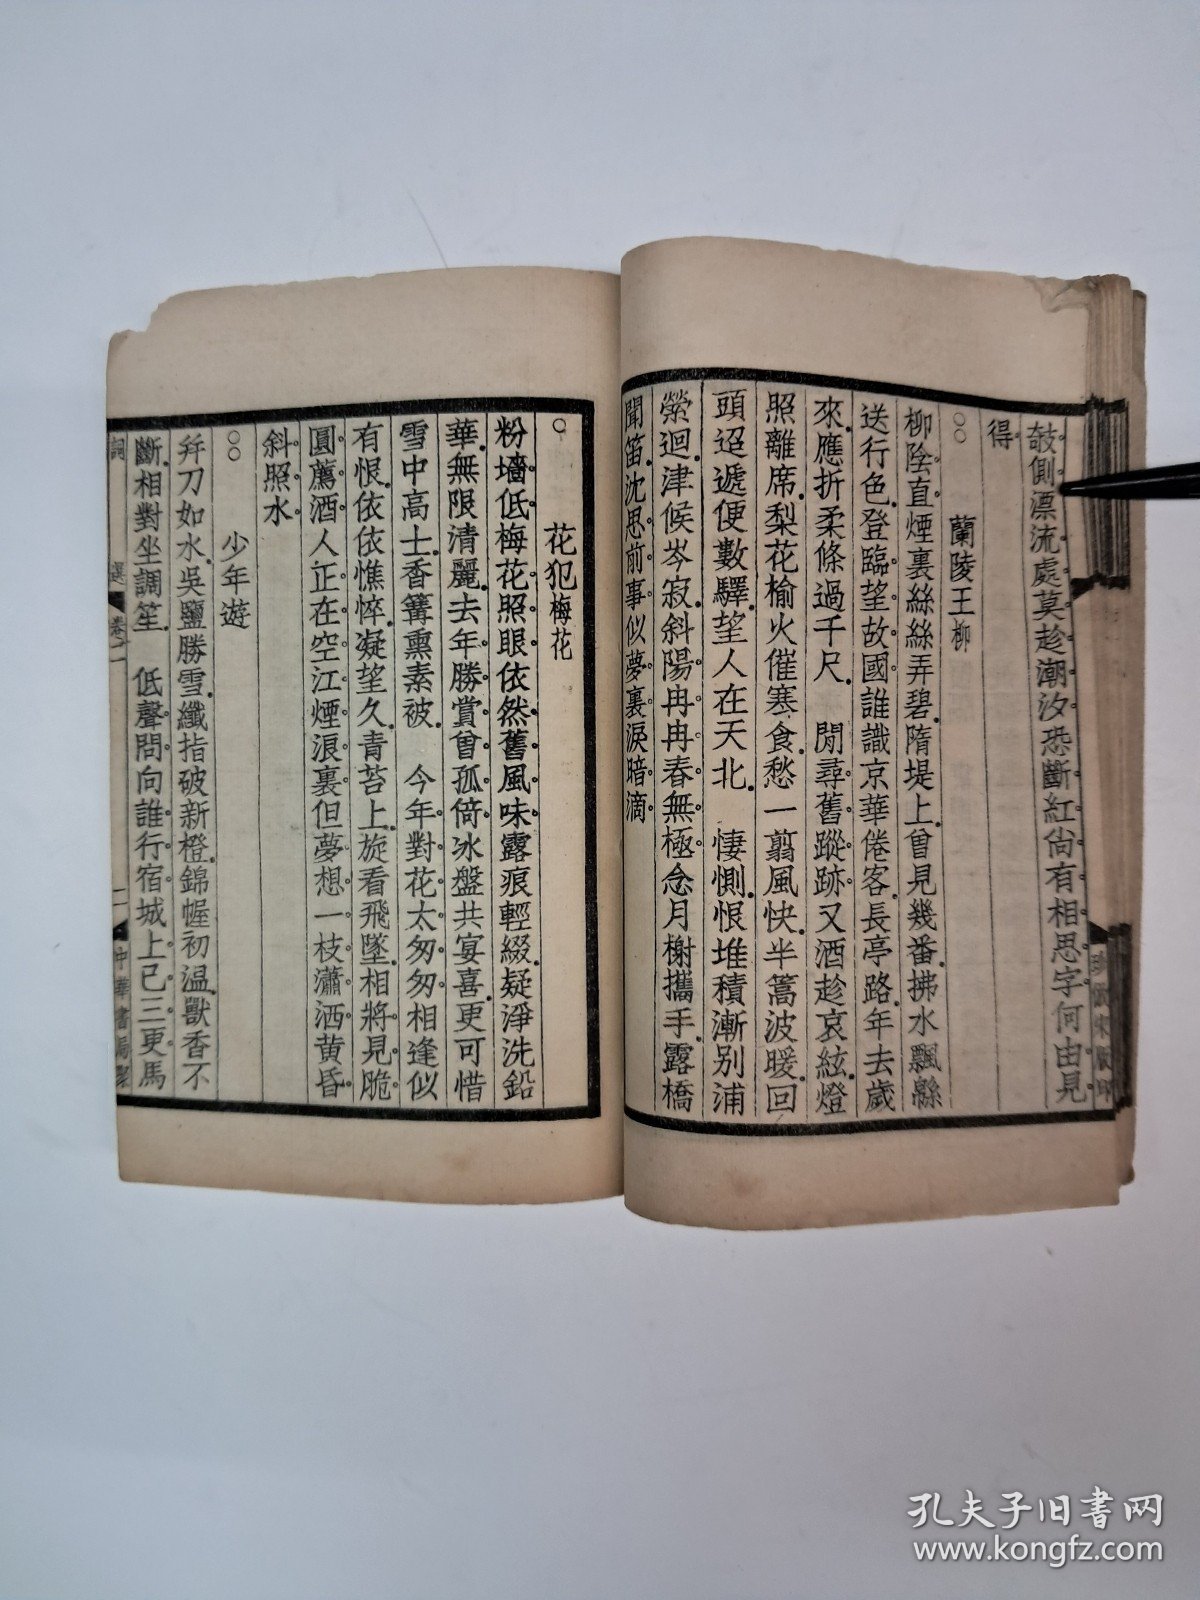 欹側漂流處莫趁潮汐恐斷紅尙有相思字何由見
得
蘭陵王柳
柳陰直煙裏絲絲弄碧隋堤上曾見幾番拂水飄緜
送行色登臨望故國誰識京華倦客長亭路年去歲
來應折柔條過千尺 閒尋舊蹤跡又酒趁哀絃燈
照離席梨花榆火催寒食愁一翦風快半篙波暖回
頭迢遞便數驛望人在天北 悽惻恨堆積漸別浦
縈迴津候岑寂斜陽冉冉春無極念月榭攜手露橋
聞笛沈思前事似夢裏淚暗滴
花犯梅花
粉墻低梅花照眼依然舊風味露痕輕綴疑淨洗鉛
華無限清麗去年勝賞曾孤倚冰盤共宴喜更可惜
雪中高士香篝熏素被 今年對花太匆匆相逢似
有恨依依憔悴凝望久青苔上旋看飛墜相將見脆
圓薦酒人正在空江煙浪裏但夢想一枝瀟洒黄昏
斜照水
少年遊
幷刀如水吳鹽勝雪纖指破新橙錦幄初温獸香不
斷相對坐調笙 低聲問向誰行宿城上已三更馬
詞 選 卷二 二 中華書局聚
孔夫子旧书网
www.kongfz.com